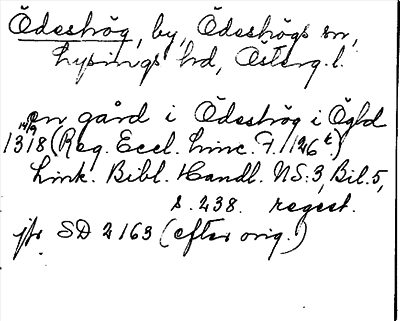 Ödeshög, by, Ödeshögs sn,
Lysings hd, Österg. l.
en gård i Ödeshög i Ögld
14/9
1318 (Reg. Eccl. Linc. F. 126 t.)
Link. Bibl. Handl. NS:3, Bil. 5,
s. 238. regest.
jfr SD 2163 (efter orig.)